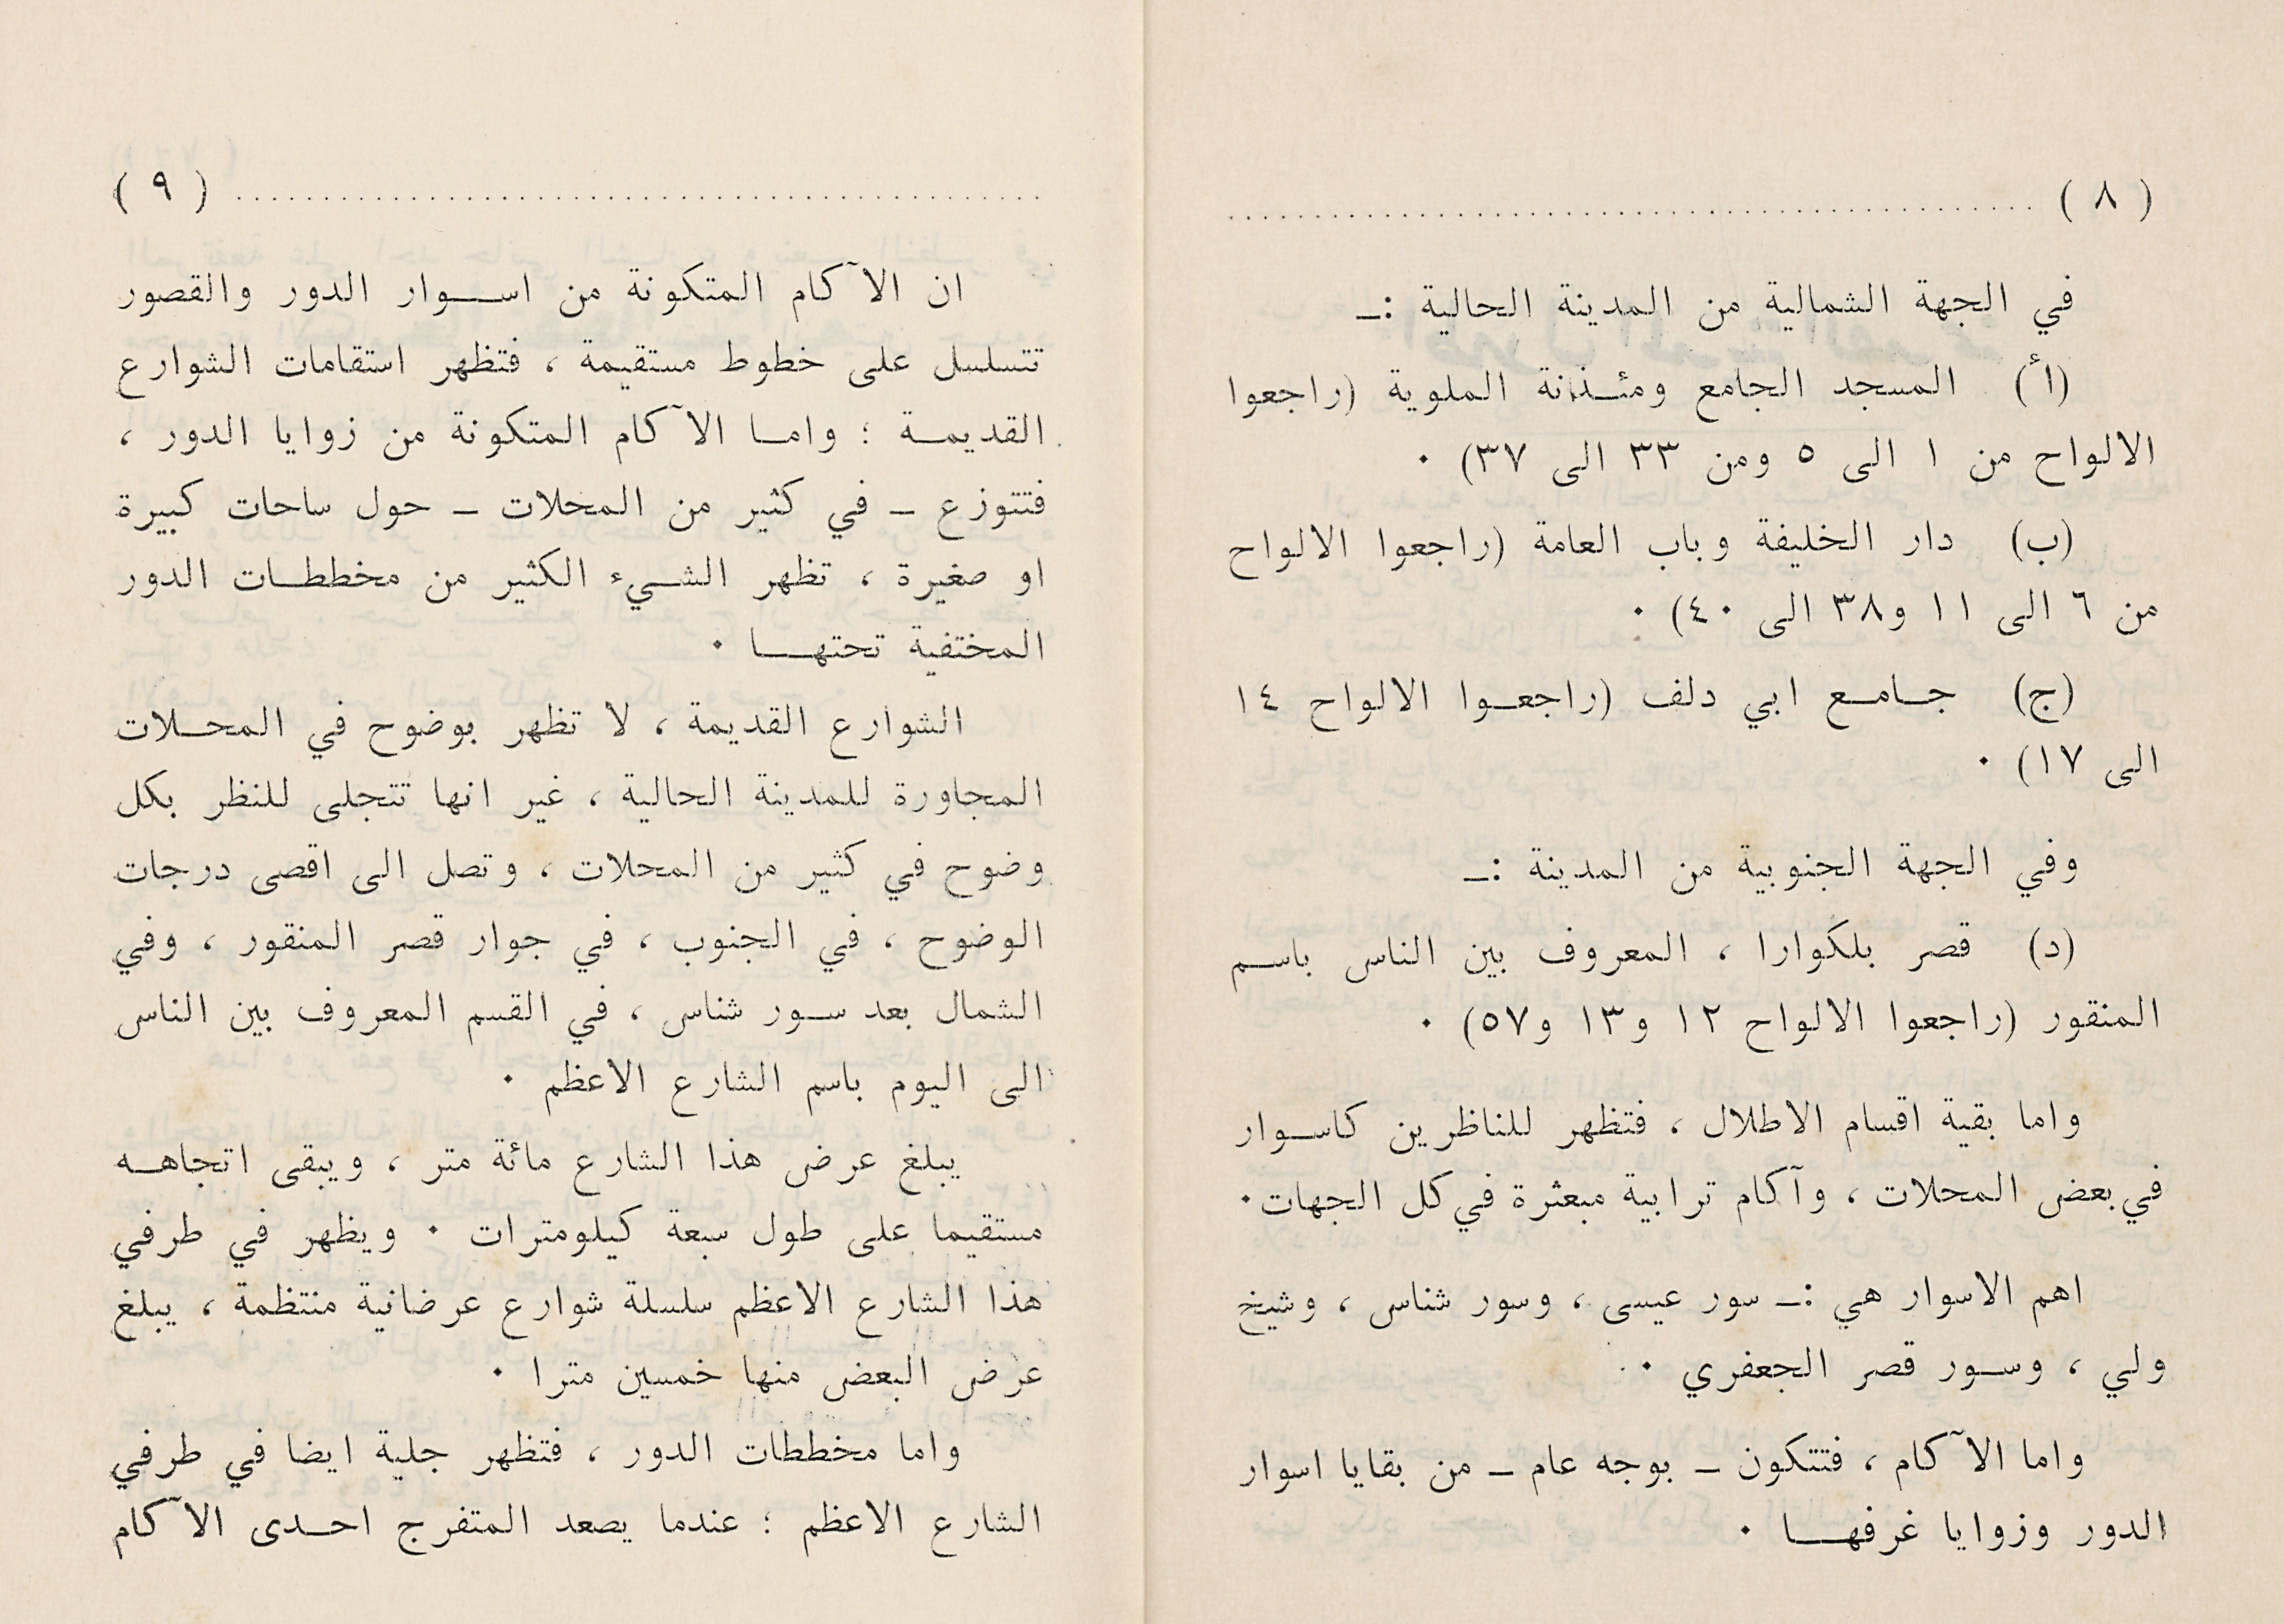 ( ٨ )
في الجهة الشمالية من المدينة الحالية :ـ
(أ) المسجد الجامع ومئـذنة الملوية (راجعوا
الالواح من ١ الى ٥ ومن ٣٣ الى ٣٧) ٠
(ب) دار الخليفة وباب العامة (راجعوا الالواح
من ٦ الى ١١ و٣٨ الى ٤٠) ٠
(ج) جـامـع ابي دلف (راجعـوا الالواح ١٤
الى ١٧) ٠
وفي الجهة الجنوبية من المدينة :ـ
(د) قصر بلكوارا ، المعروف بين الناس باسـم
المنقور (راجعوا الالواح ١٢ و١٣ و٥٧) ٠
واما بقية اقسام الاطلال ، فتظهر للناظرين كاسـوار
في بعض المحلات ، وآكام ترابية مبعثرة في كل الجهات٠
اهم الاسوار هي :ـ سور عيسى ، وسور شناس ، وشيخ
ولي ، وسـور قصر الجعفري ٠
واما الآكام ، فتتكون ـ بوجه عام ـ من بقايا اسوار
الدور وزوايا غرفهـــا ٠
( ٩ )
ان الآكام المتكونة من اســوار الدور والقصور
تتسلسل على خطوط مستقيمة ، فتظهر استقامات الشوارع
القديمـة ؛ وامـا الآكام المتكونة من زوايا الدور ،
فتتوزع ـ في كثير من المحلات ـ حول ساحات كبيرة
او صغيرة ، تظهر الشـيء الكثير من مخططـات الدور
المختفية تحتهـــا ٠
الشوارع القديمة ، لا تظهر بوضوح في المحـلات
المجاورة للمدينة الحالية ، غير انها تتجلى للنظر بكل
وضوح في كثير من المحلات ، وتصل الى اقصى درجات
الوضوح ، في الجنوب ، في جوار قصر المنقور ، وفي
الشمال بعد سـور شناس ، في القسم المعروف بين الناس
الى اليوم باسم الشارع الاعظم ٠
يبلغ عرض هذا الشارع مائة متر ، ويبقى اتجاهـه
مستقيما على طول سبعة كيلومترات ٠ ويظهر في طرفي
هذا الشارع الاعظم سلسلة شوارع عرضانية منتظمة ، يبلغ
عرض البعض منها خمسين مترا ٠
واما مخططات الدور ، فتظهر جلية ايضا في طرفي
الشارع الاعظم ؛ عندما يصعد المتفرج احـدى الآكام